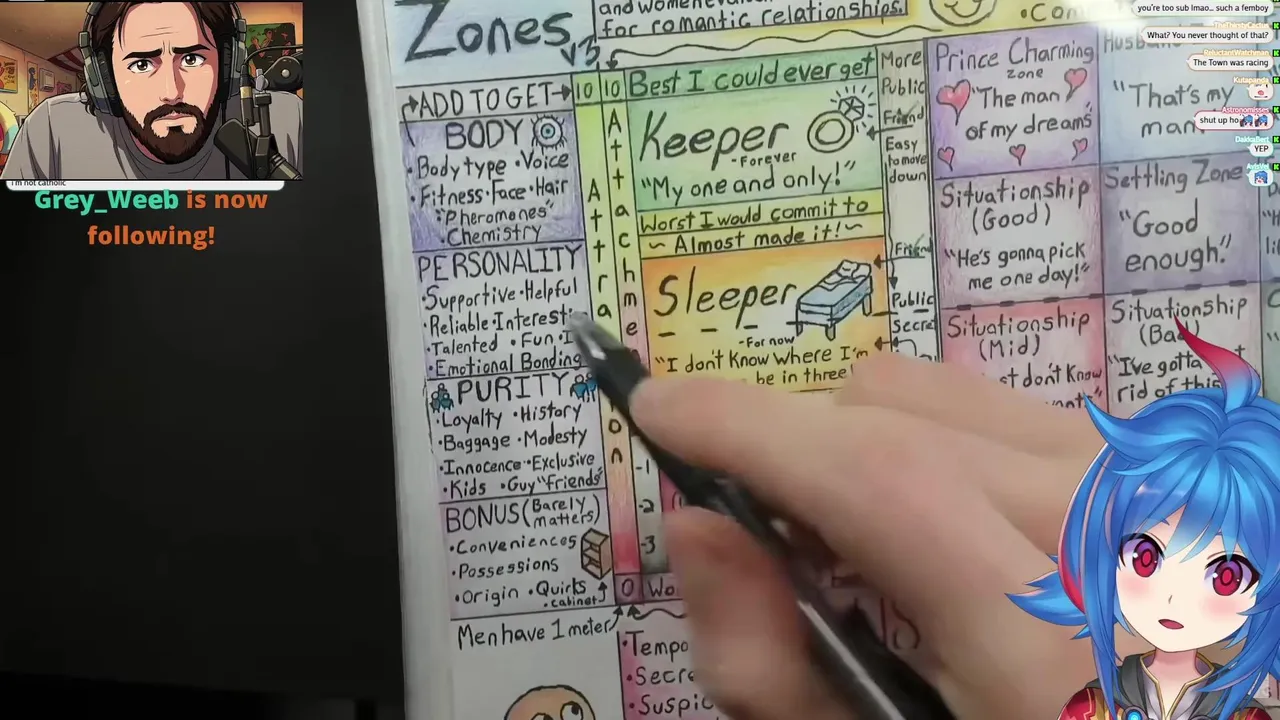 Zones
v3
and women
for romantic relationships.
•Com
ADD TO GET
10
10
Best I could ever get
BODY
•Body type •Voice
•Fitness •Face •Hair
"Pheromones"
•Chemistry
PERSONALITY
•Supportive •Helpful
•Reliable •Interesti
•Talented •Fun
•Emotional Bonding
PURITY
•Loyalty •History
•Baggage •Modesty
•Innocence •Exclusive
•Kids •Guy "Friends"
BONUS (Barely matters)
•Conveniences
•Possessions
•Origin •Quirks
•cabinet
Men have 1 meter
Attra
on
Attachme
-1
-2
-3
0
Wo
Keeper
-Forever
"My one and only!"
Worst I would commit to
~ Almost made it! ~
Sleeper
-For now
"I don't know where I'm
be in three
•Tempo
•Secre
•Suspic
More
Public
Friend
Easy
to move
down
Friend
Public
Secret
Prince Charming
zone
"The man
of my dreams"
Situationship
(Good)
"He's gonna pick
me one day!"
Situationship
(Mid)
st don't know
"That's my
man"
Settling Zone
"Good
enough."
Situationship
(Ba
"I've gotta
rid of this
I'm not catholic
Grey_Weeb is now
following!
you're too sub lmao... such a femboy
What? You never thought of that?
ReluctantWatchman
The Town was racing
Kutapanda
Astronomisses
shut up ho
YEP